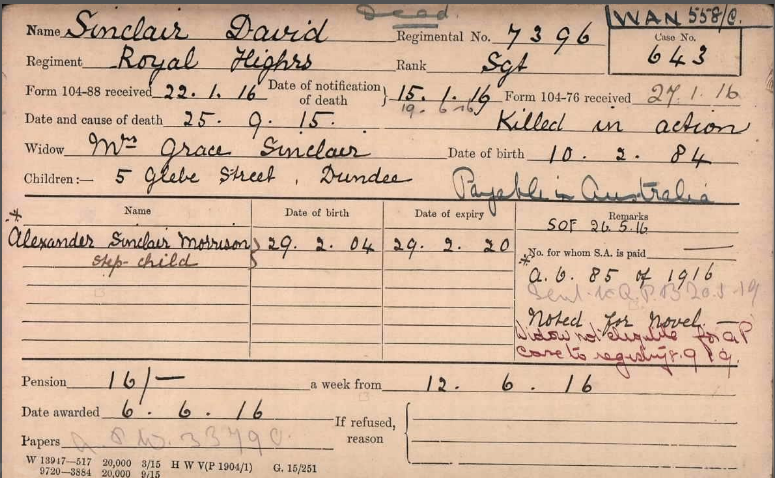 Dead.
WAN 558/C.
Name Sinclair David Regimental No. 7396 Case No. 643
Regiment Royal Highrs Rank Sgt
Form 104-88 received 22. 1. 16 Date of notification of death } 15. 1. 16 Form 104-76 received 27. 1. 16
19. 6 16
Date and cause of death 25. 9. 15. Killed in action
Widow Mrs Grace Sinclair Date of birth 10. 2. 84
Children:— 5 Glebe Street, Dundee Payable in Australia
Name Date of birth Date of expiry Remarks
SOF 26.5.16
* Alexander Sinclair Morrison } 29. 2. 04 29. 2. 20 * No. for whom S.A. is paid —
step-child
a. b. 85 of 1916
Noted for Novel. —
Widow not eligible for a P
Case to registry
Pension 16/— a week from 12. 6. 16
Date awarded 6. 6. 16 If refused, reason
Papers
W 13947—517 20,000 3/15 H W V(P 1904/1) G. 15/251
9720—3884 20,000 9/15